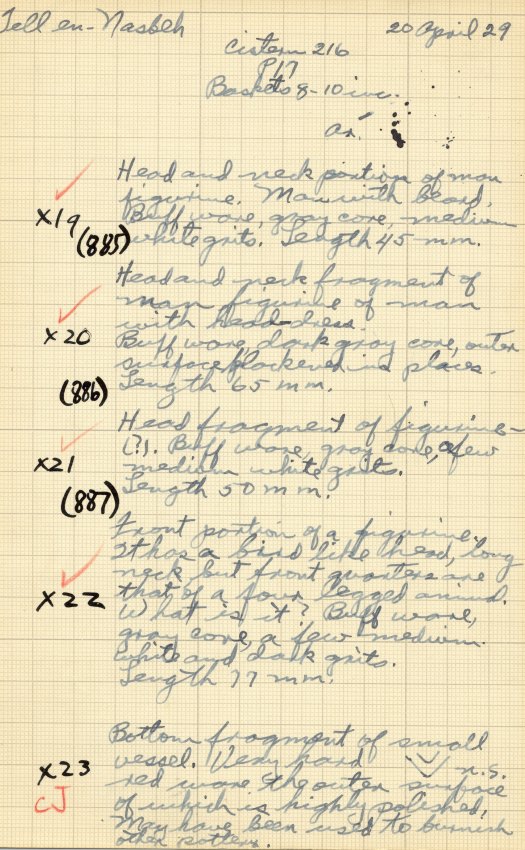 Tell en-Nasbeh 20 April 29
Cistern 216
P17
Baskets 8-10 inc.
Head and neck portion of man
figurine. Man with beard,
X19 Buff ware, gray core, medium
(885) white grits. Length 45 mm.
Head and neck fragment of
man figurine of man
with head-dress.
X20 Buff ware dark gray core, outer
surface blackened in places.
(886) Length 65 mm.
Head fragment of figurine-
(?). Buff ware, gray core, a few
X21 medium white grits.
(887) Length 50 mm.
Front portion of a figurine.
It has a bird like head, long
neck but front quarters are
X22 that of a four legged animal.
What is it? Buff ware,
gray core, a few medium
white and dark grits.
Length 77 mm.
Bottom fragment of small
vessel. Very hard n.s.
X23 red ware the outer surface
CJ of which is highly polished,
May have been used to burnish
other potters.